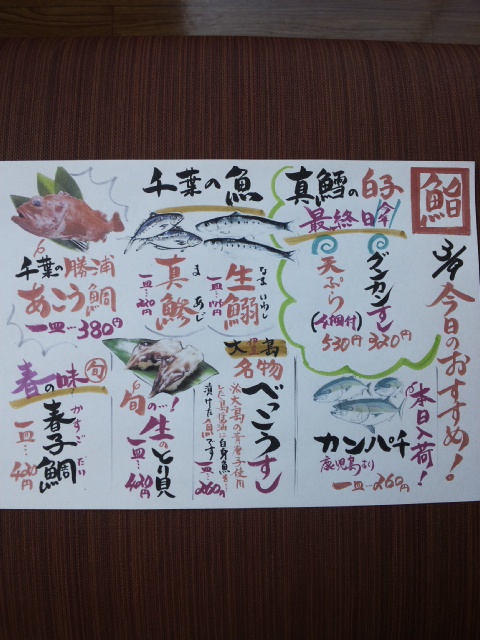 鮨
3/9 今日のおすすめ!
真鱈の白子
最終日
グンカンすし
320円
天ぷら
530円
本日入荷!
カンパチ
鹿児島より
一皿…260円
千葉の魚
生鰯
なま いわし
一皿…
真鯵
ま あじ
一皿…
千葉の勝浦
あこう鯛
一皿…380円
大島
名物
べっこうすし
伊大島の青唐子使用
した島醤油に白身魚を
漬けた魚です
一皿…260円
旬の…!
生のとり貝
一皿…420円
春の味
旬
春子鯛
かすご だい
一皿…